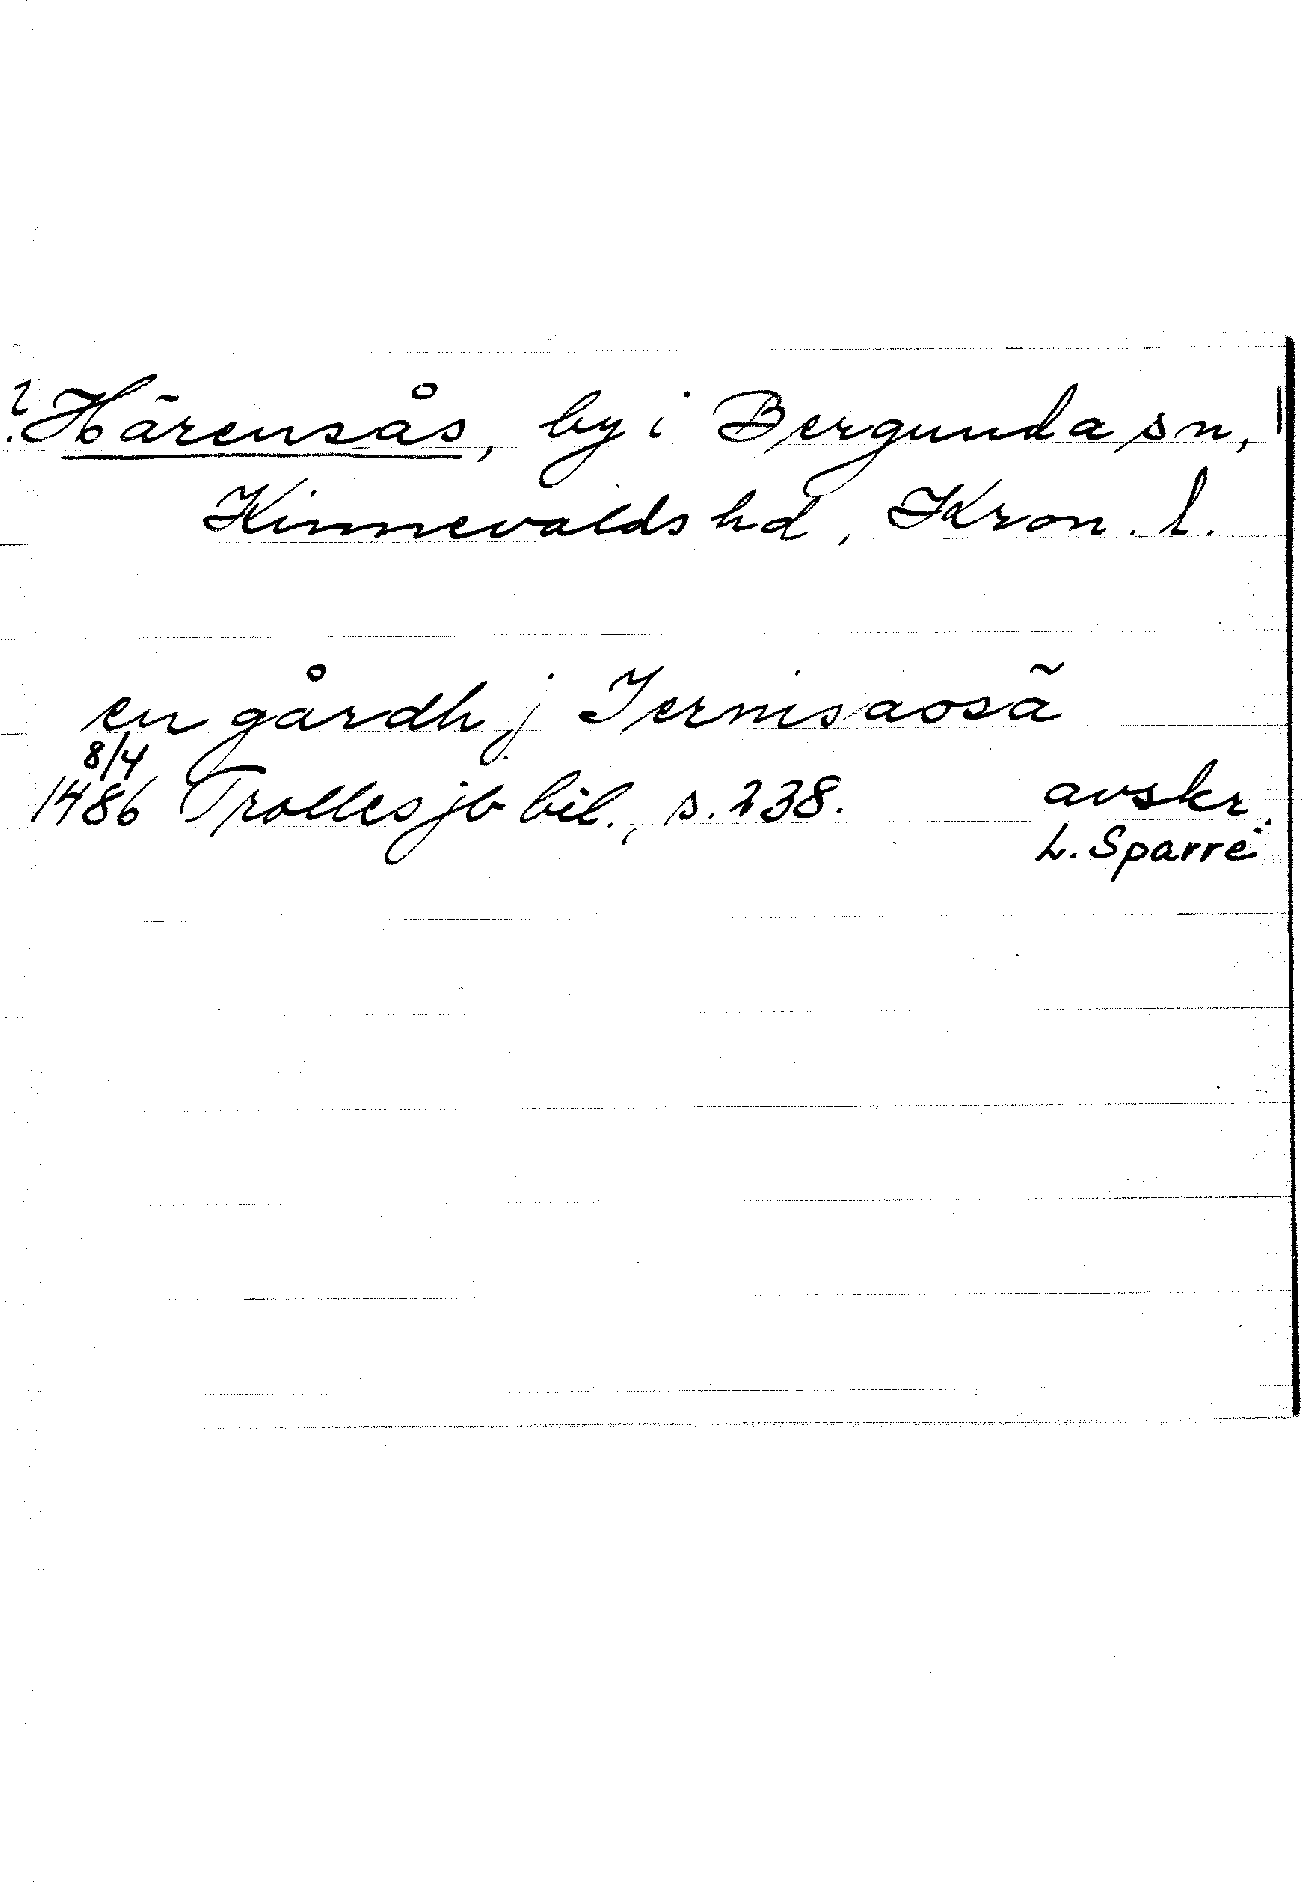 ? Härensås, by i Bergunda sn,
Kinnevalds hd, Kron. l.
en gårdh j Jernisaosã
8/4
1486 Trolles jb bil., s. 238. avskr.
L. Sparre